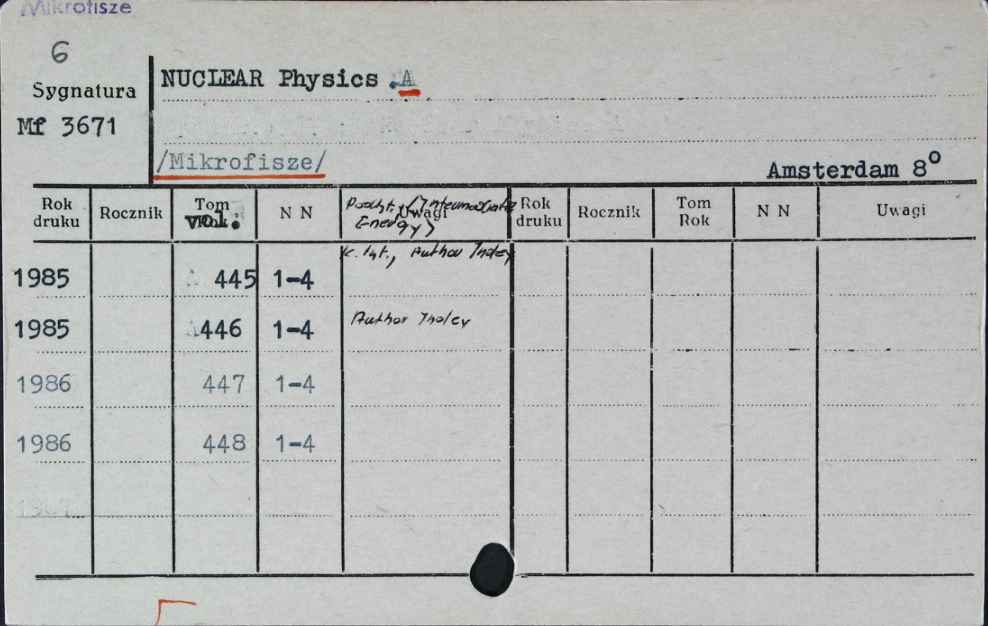 Mikrofisze
6
Sygnatura
Mf 3671
NUCLEAR Physics .A
/Mikrofisze/
Amsterdam 8°
Rok druku Rocznik Tom vol. N N Uwagi Rok druku Rocznik Tom Rok N N Uwagi
Energy)
k. tyt., Author Index
1985 445 1-4
1985 446 1-4 Author Index
1986 447 1-4
1986 448 1-4